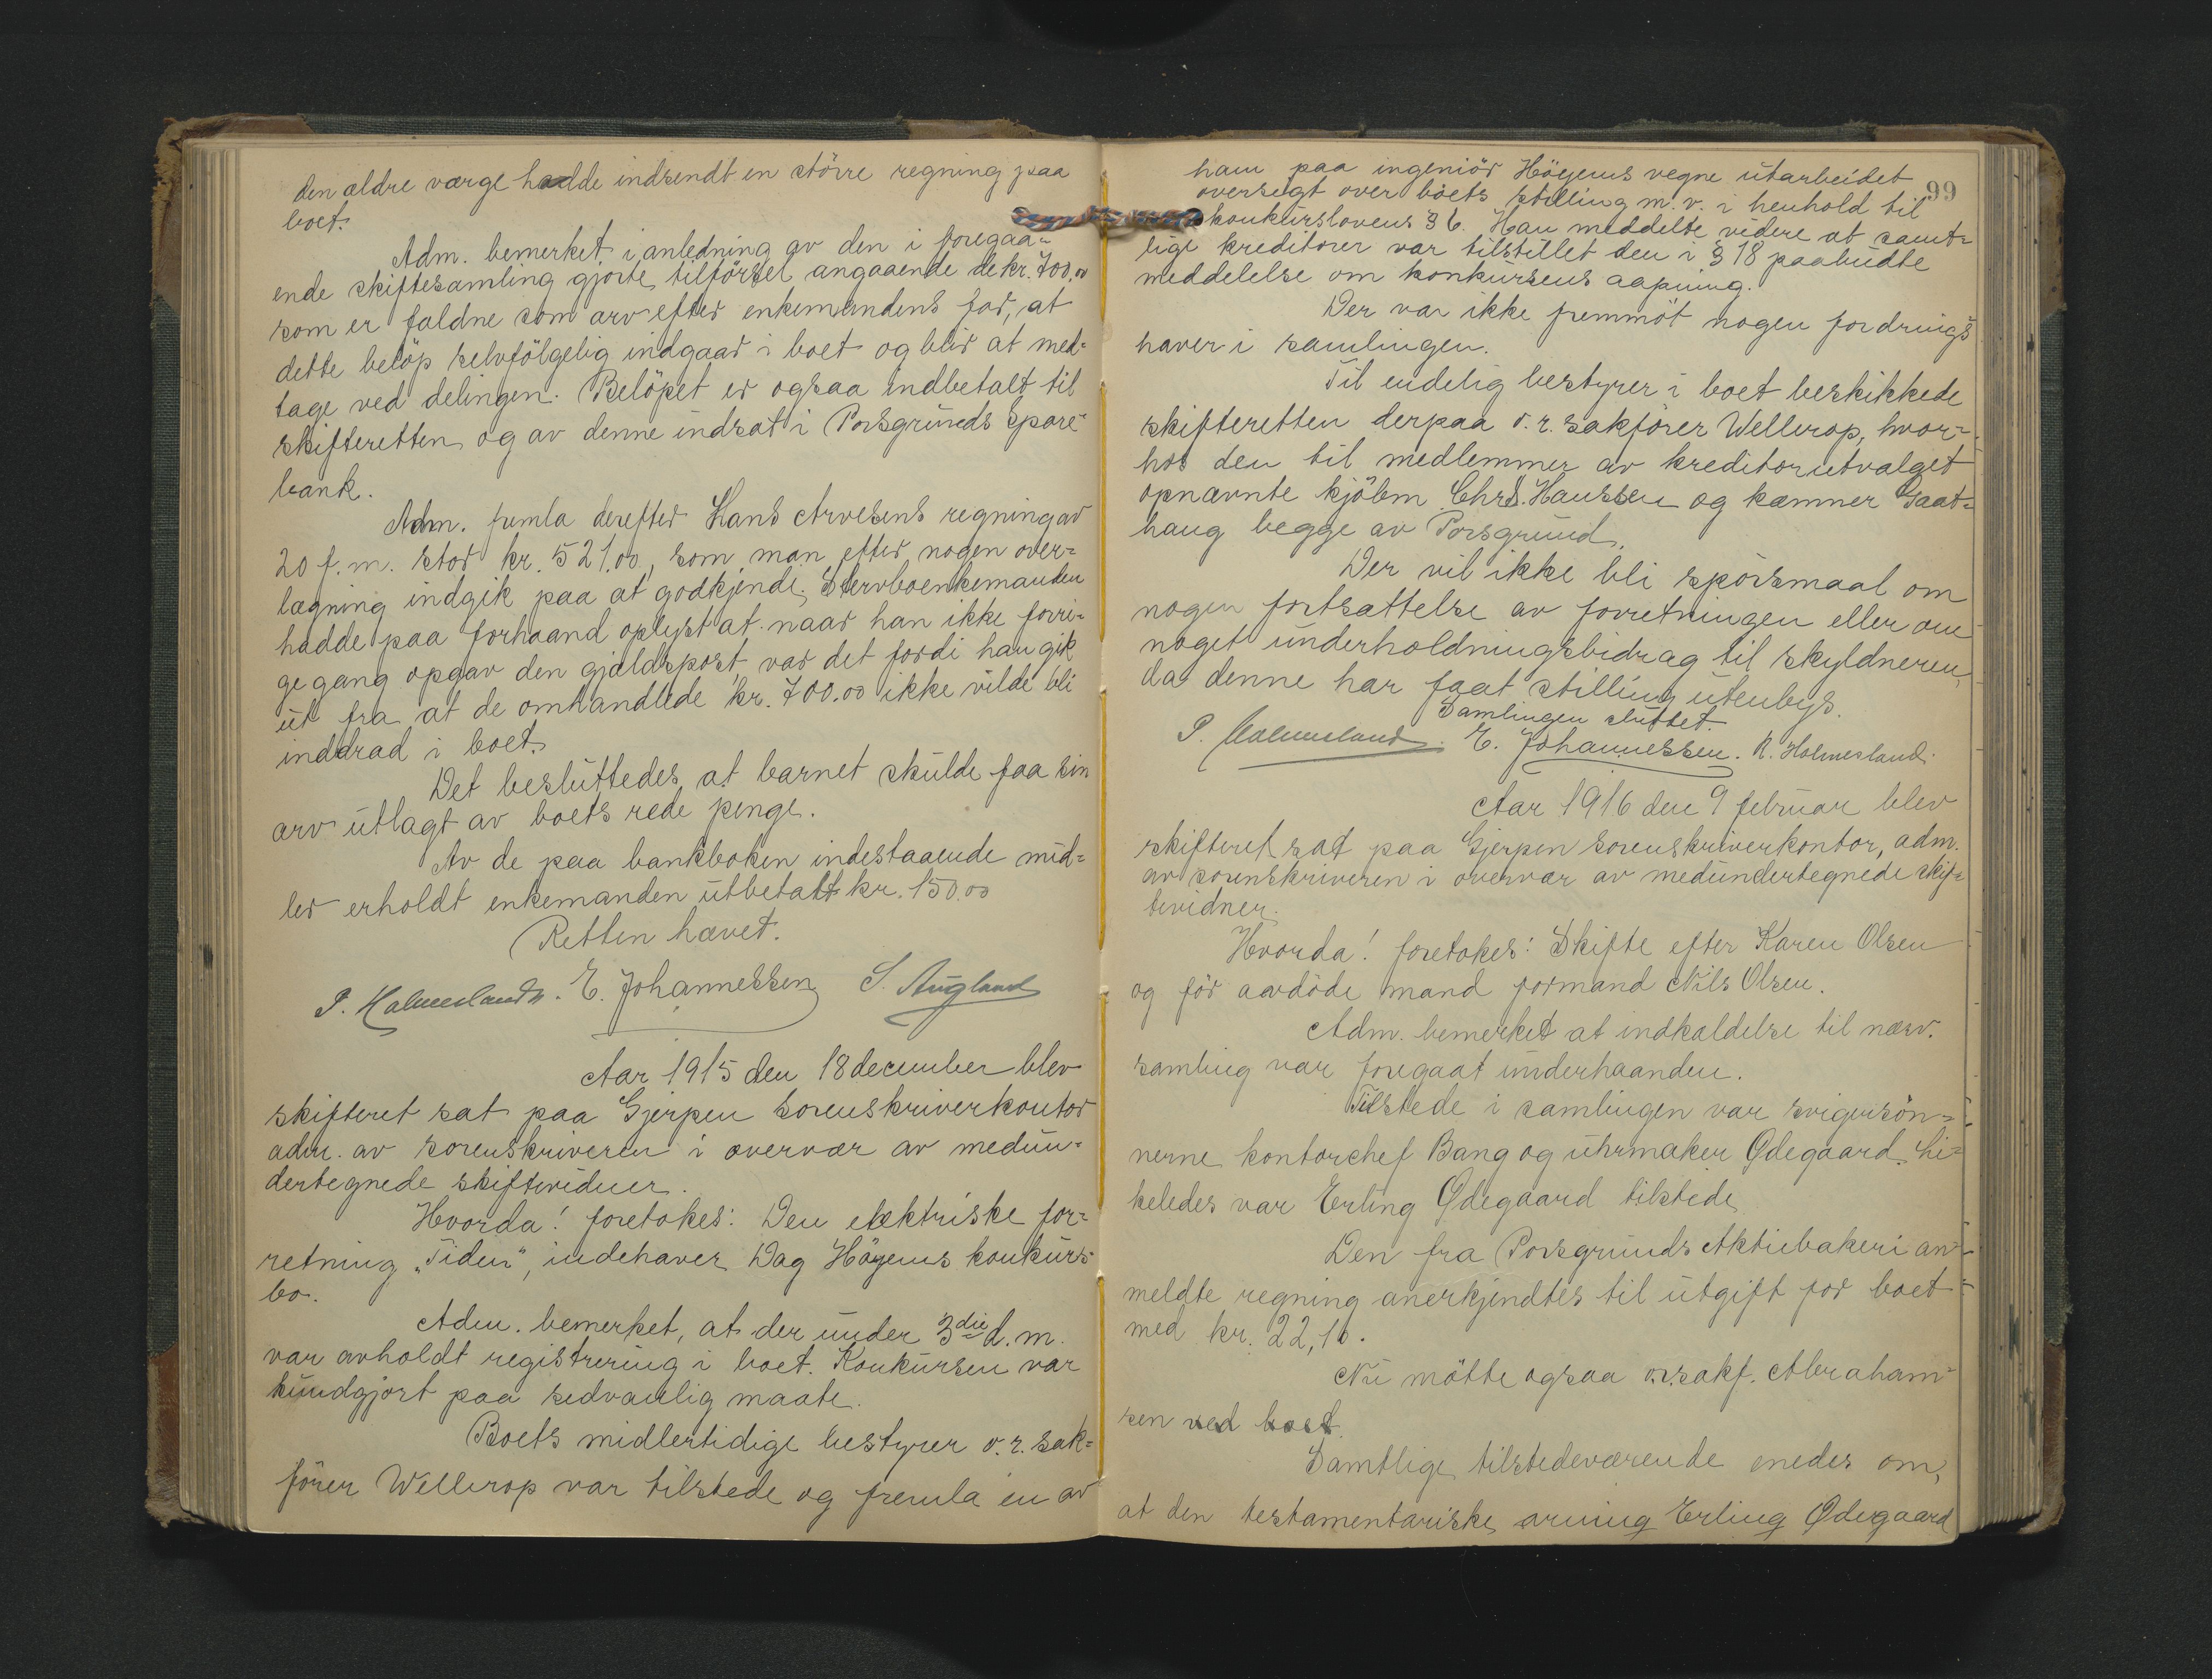 den ældre værge hadde indsendt en större regning paa
boet.
Adm. bemerket i anledning av den i foregaa-
ende skiftesamling gjorte tilförsel angaaende de kr. 700.00
som er faldne som arv efter enkemandens far, at
dette belöp selvfölgelig indgaar i boet og blir at med-
tage ved delingen. Belöpet er ogsaa indbetalt til
skifteretten og av denne indsat i Porsgrunds Spare-
bank.
Adm. fremla derefter Hans Arvesens regning av
20 f.m. stor kr. 521.00, som man efter nogen over-
lægning indgik paa at godkjende. Stervboenkemanden
hadde paa forhaand oplyst at naar han ikke forri-
ge gang opgav den gjældspost, var det fordi han gik
ut fra at de omhandlede kr. 700.00 ikke vilde bli
inddrad i boet.
Det besluttedes at barnet skulde faa sin
arv utlagt av boets rede penge.
Av de paa bankboken indestaaende mid-
ler erholdt enkemanden utbetalt kr. 150.00
Retten hævet.
P. Holmesland. E. Johannessen S. Augland
Aar 1915 den 18 december blev
skifteret sat paa Gjerpen sorenskriverkontor
adm. av sorenskriveren i overvær av medun-
dertegnede skiftevidner.
Hvorda! foretokes: Den elektriske for-
retning "Tiden", indehaver Dag Höyems konkurs-
bo.
Adm. bemerket, at der under 3die d.m.
var avholdt registrering i boet. Konkursen var
kundgjort paa sedvanlig maate.
Boets midlertidige bestyrer o.r. sak-
förer Wellerop var tilstede og fremla en av
99
ham paa ingeniör Höyems vegne utarbeidet
oversigt over boets stilling m.v. i henhold til
konkurslovens § 6. Han meddelte videre at samt-
lige kreditorer var tilstillet den i § 18 paabudte
meddelelse om konkursens aapning.
Der var ikke fremmöt nogen fordrings-
haver i samlingen.
Til endelig bestyrer i boet beskikkede
skifteretten derpaa o.r. sakförer Wellerop, hvor-
hos den til medlemmer av kreditorutvalget
opnævnte kjöbm. Chrs. Hanssen og kæmner Gaat-
haug begge av Porsgrund.
Der vil ikke bli spörsmaal om
nogen fortsættelse av forretningen eller om
noget underholdningsbidrag til skyldneren,
da denne har faat stilling utenbys.
Samlingen sluttet.
P. Holmesland. E. Johannessen. R. Holmesland.
Aar 1916 den 9 februar blev
skifteret sat paa Gjerpen sorenskriverkontor, adm.
av sorenskriveren i overvær av medundertegnede skif-
tevidner.
Hvorda! foretokes: Skifte efter Karen Olsen
og för avdöde mand formand Nils Olsen.
Adm. bemerket at indkaldelse til nærv.
samling var foregaat underhaanden.
Tilstede i samlingen var svigersön-
nerne kontorchef Bang og uhrmaker Ødegaard. Li-
keledes var Erling Ødegaard tilstede
Den fra Porsgrunds Aktiebakeri an-
meldte regning anerkjendtes til utgift for boet
med kr. 22,10.
Nu mötte ogsaa o.r.sakf. Abraham-
sen ved boet.
Samtlige tilstedeværende enedes om,
at den testamentariske arving Erling Ødegaard